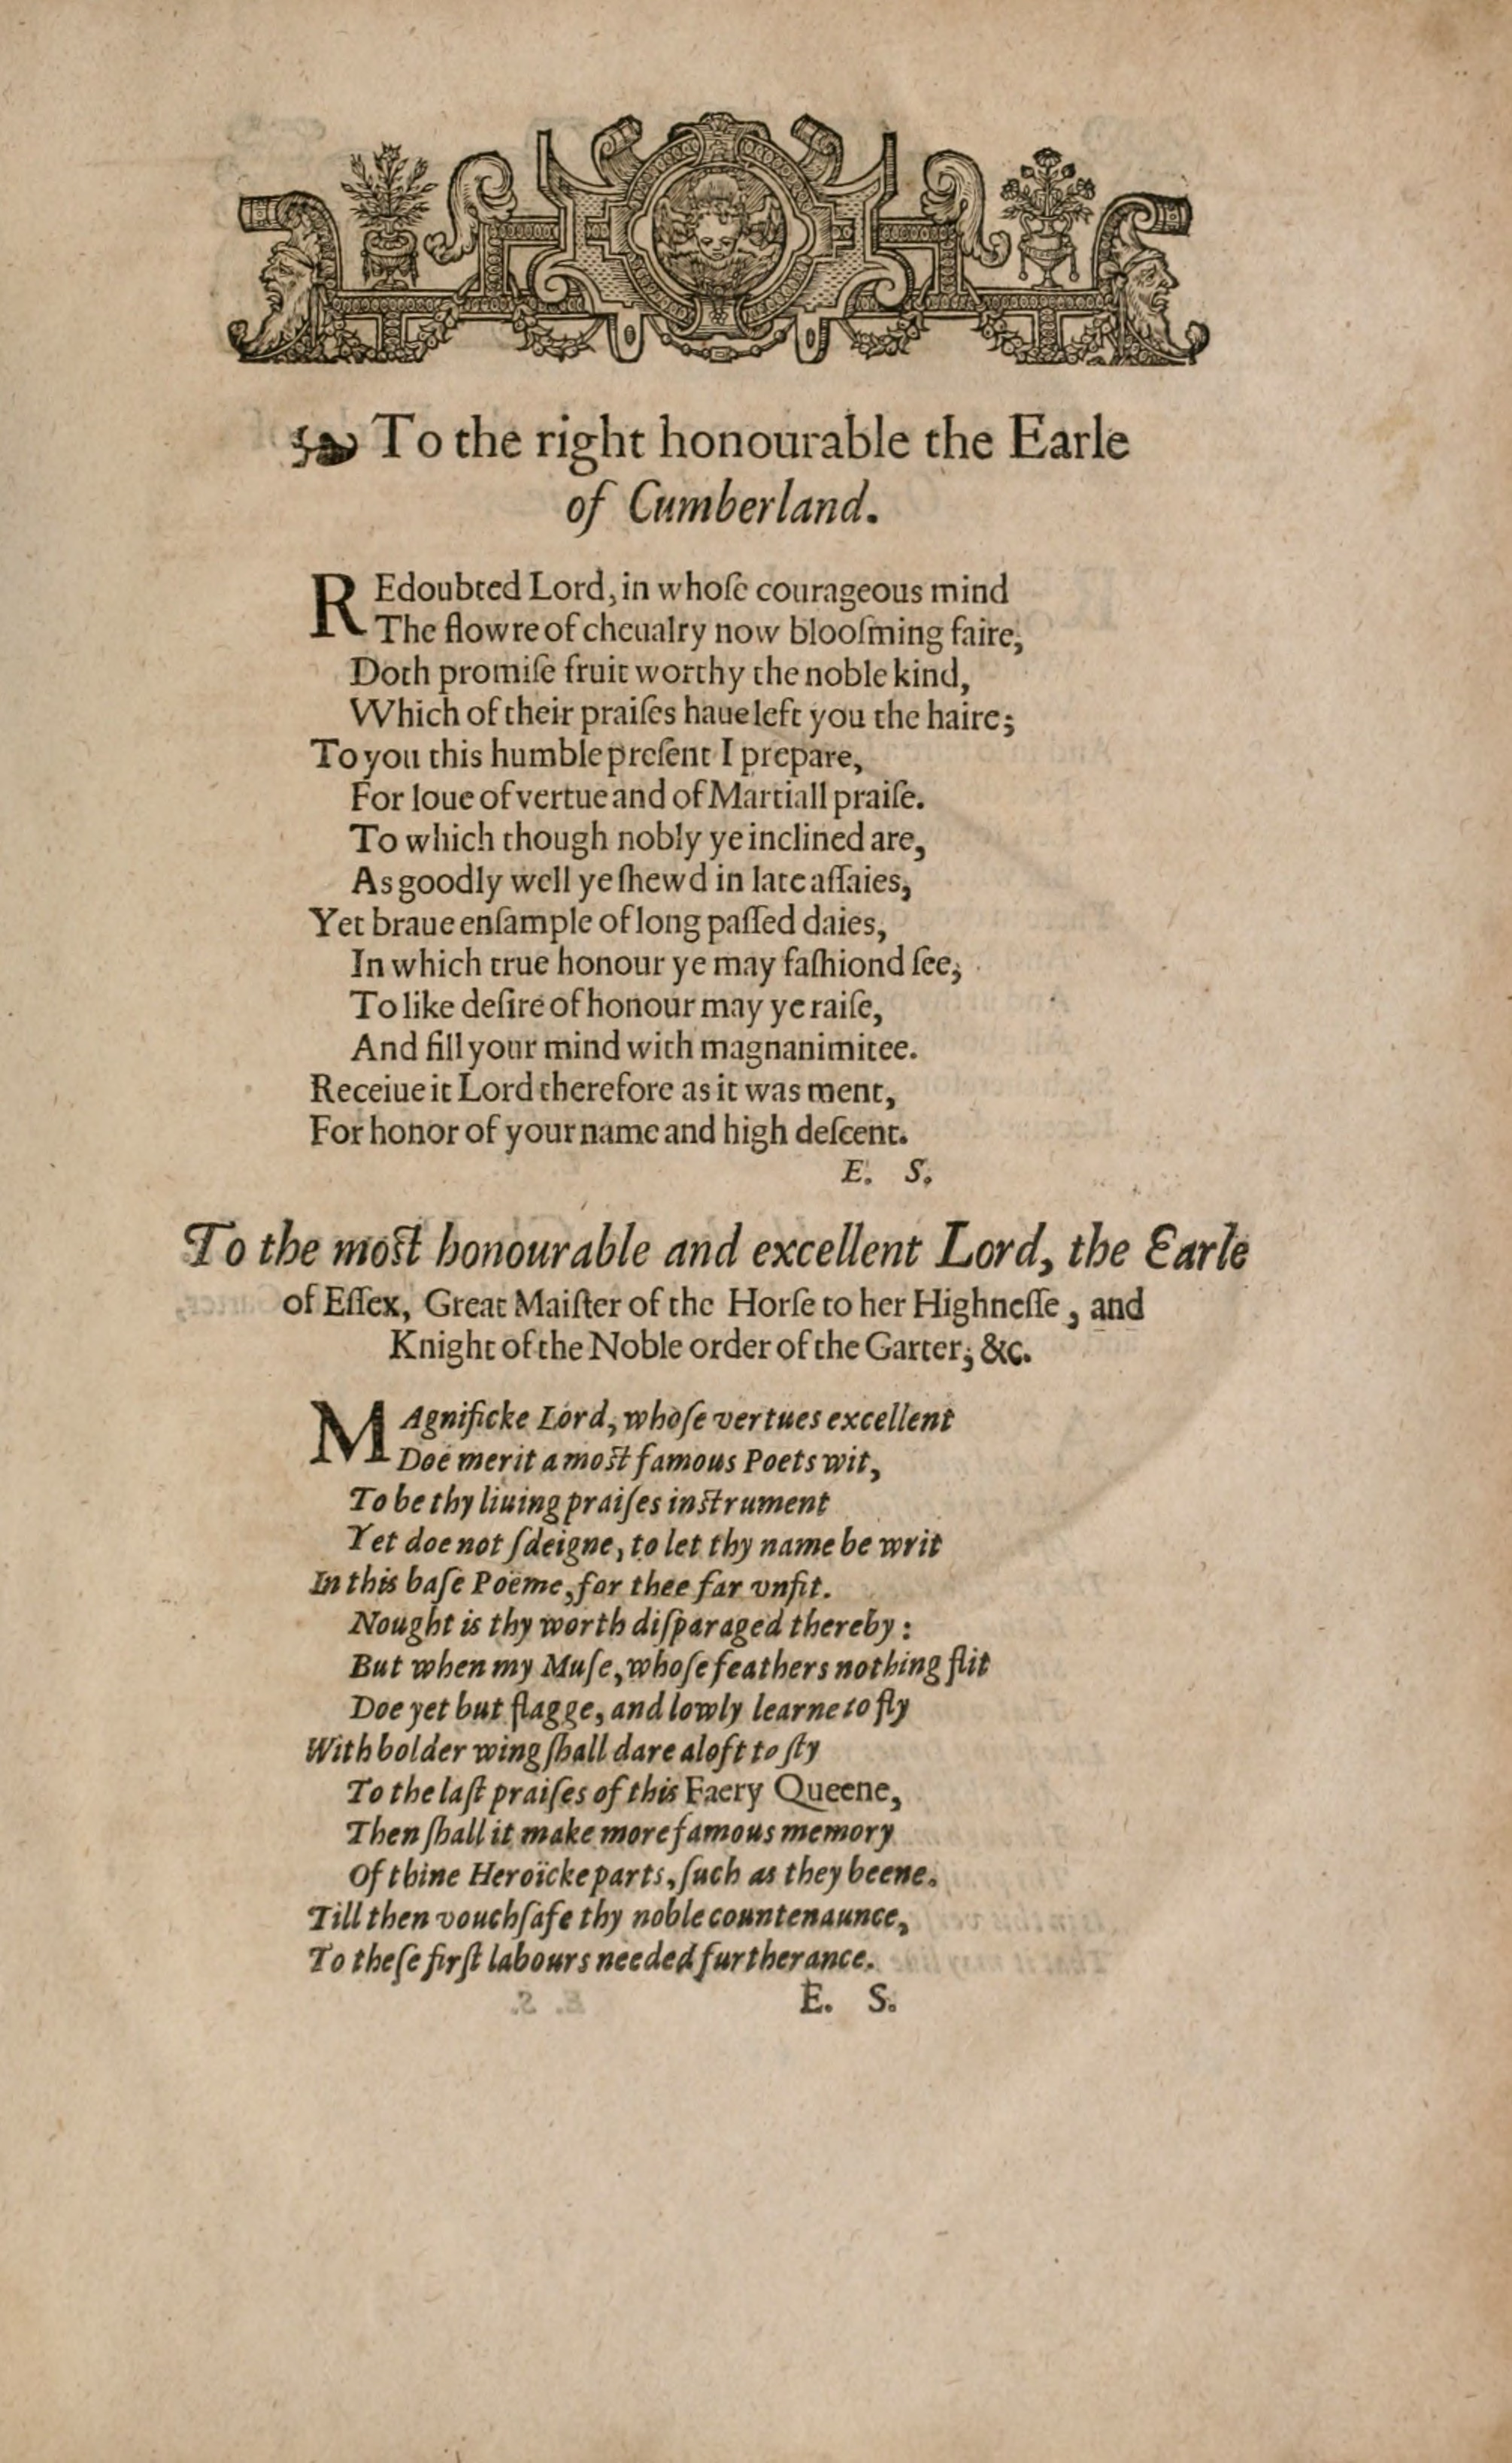 To the right honourable the Earle
of Cumberland.
REdoubted Lord, in whoſe courageous mind
The flowre of cheualry now blooſming faire,
Doth promiſe fruit worthy the noble kind,
Which of their praiſes haue left you the haire;
To you this humble preſent I prepare,
For loue of vertue and of Martiall praiſe.
To which though nobly ye inclined are,
As goodly well ye ſhewd in late aſſaies,
Yet braue enſample of long paſſed daies,
In which true honour ye may faſhiond ſee,
To like deſire of honour may ye raiſe,
And fill your mind with magnanimitee.
Receiue it Lord therefore as it was ment,
For honor of your name and high deſcent.
E. S.
To the moſt honourable and excellent Lord, the Earle
of Eſſex, Great Maiſter of the Horſe to her Highneſſe, and
Knight of the Noble order of the Garter, &c.
MAgnificke Lord, whoſe vertues excellent
Doe merit a moſt famous Poets wit,
To be thy liuing praiſes inſtrument
Yet doe not ſdeigne, to let thy name be writ
In this baſe Poëme, for thee far vnfit.
Nought is thy worth diſparaged thereby:
But when my Muſe, whoſe feathers nothing flit
Doe yet but flagge, and lowly learne to fly
With bolder wing ſhall dare aloft to ſty
To the laſt praiſes of this Faery Queene,
Then ſhall it make more famous memory
Of thine Heroïcke parts, ſuch as they beene.
Till then vouchſafe thy noble countenaunce,
To theſe firſt labours needed furtherance.
E. S.